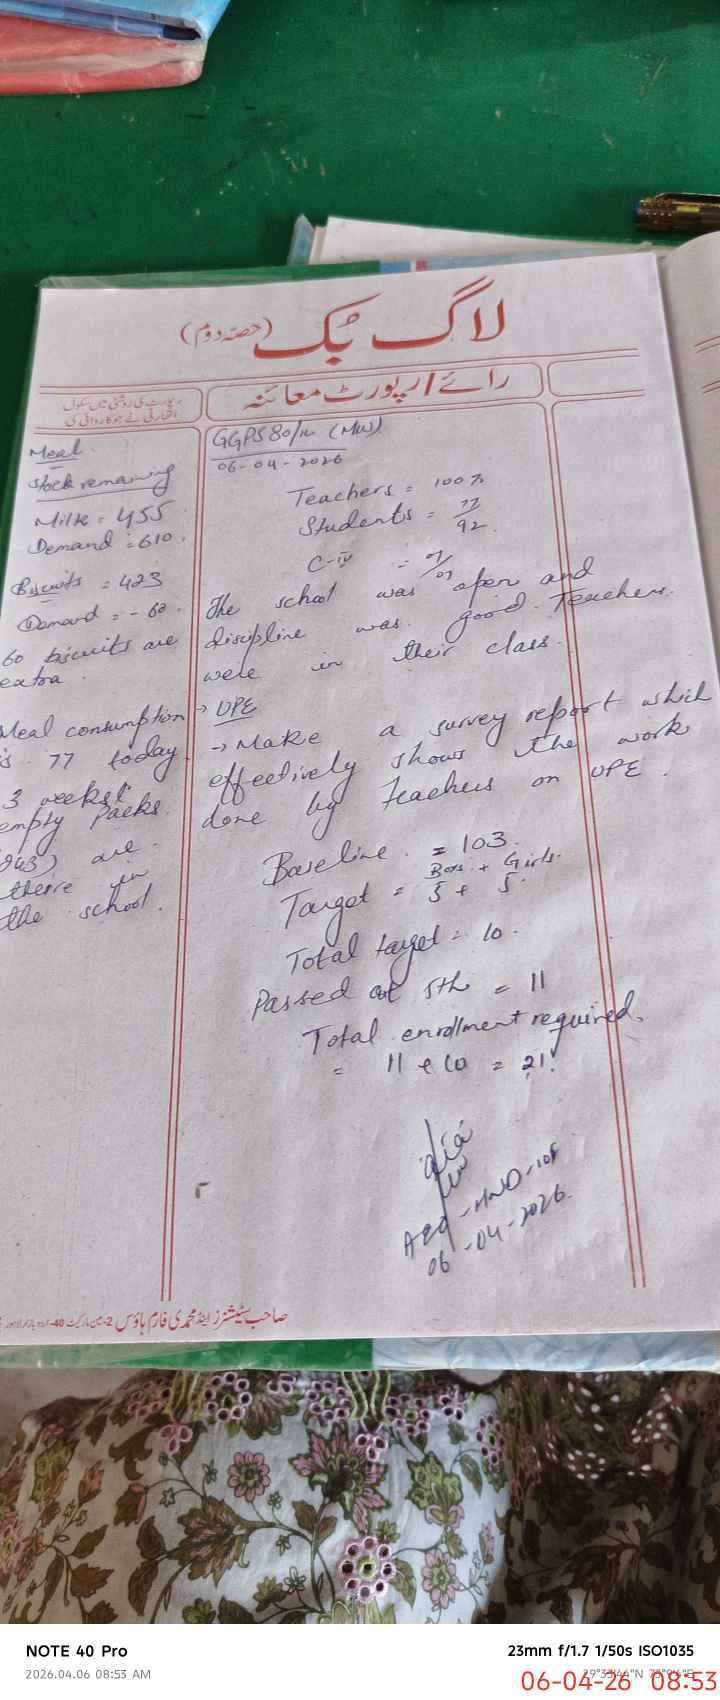 لاگ بک (حصّہ دوم)
رائے / رپورٹ معائنہ
رپورٹ کی روشنی میں سکول
اتھارٹی نے جو کاروائی کی
Meal
Stock remaining
Milk = 455
Demand = 610
Biscuits = 423
Demand = - 60
60 biscuits are
extra
Meal consumption
is 77 today
3 weeks
empty packs
are
there in
the school.
GGPS 80/ (MW)
06-04-2026
Teachers = 100%
Students = 77/92
C-IV =
The school was open and
discipline was good. Teachers
were in their class.
→ UPE
→ Make a survey report which
effectively shows the work
done by teachers on UPE.
Baseline = 103
Target = Boys + Girls
5 + 5
Total target = 10.
Passed out 5th = 11
Total enrollment required.
= 11 + 10 = 21.
AEO-
06-04-2026
صاحب سٹیشنرز اینڈ محمدی فارم ہاؤس 2-مین مارکیٹ 40-اردو بازار لاہور
NOTE 40 Pro
2026.04.06 08:53 AM
23mm f/1.7 1/50s ISO1035
06-04-26 08:53